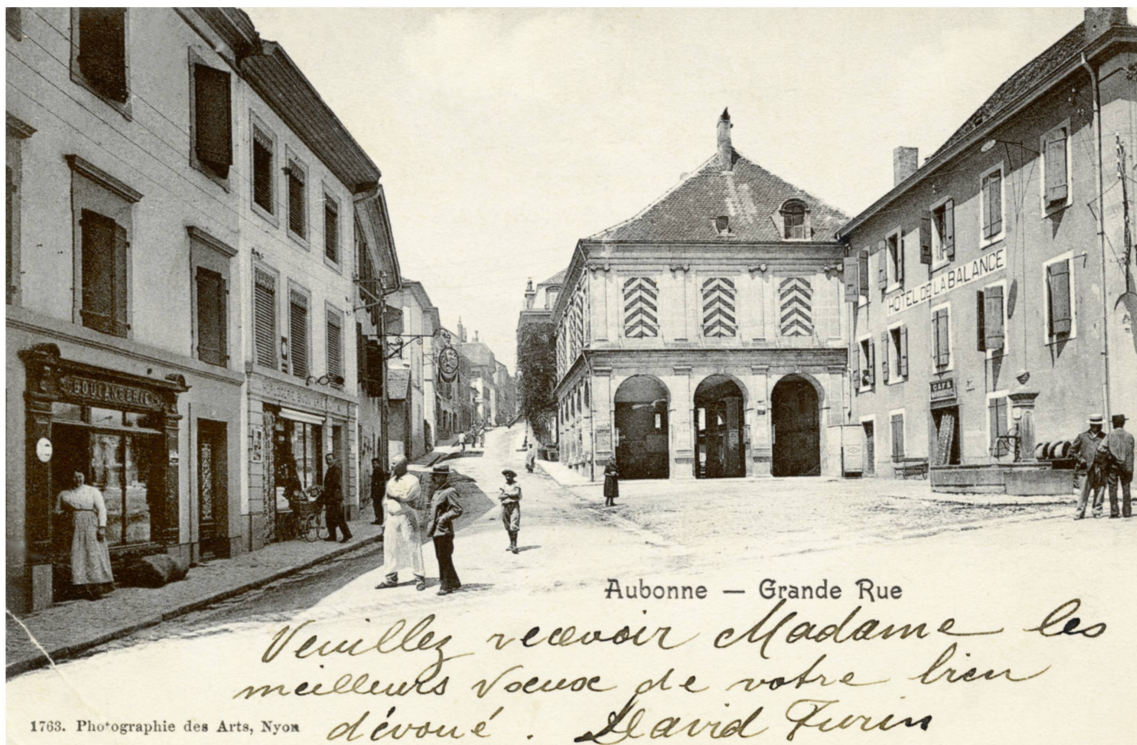 BOULANGERIE
HOTEL DE LA BALANCE
CAFÉ
Aubonne — Grande Rue
Veuillez recevoir Madame les
meilleurs vœux de votre bien
dévoué. David Furin
1763. Photographie des Arts, Nyon